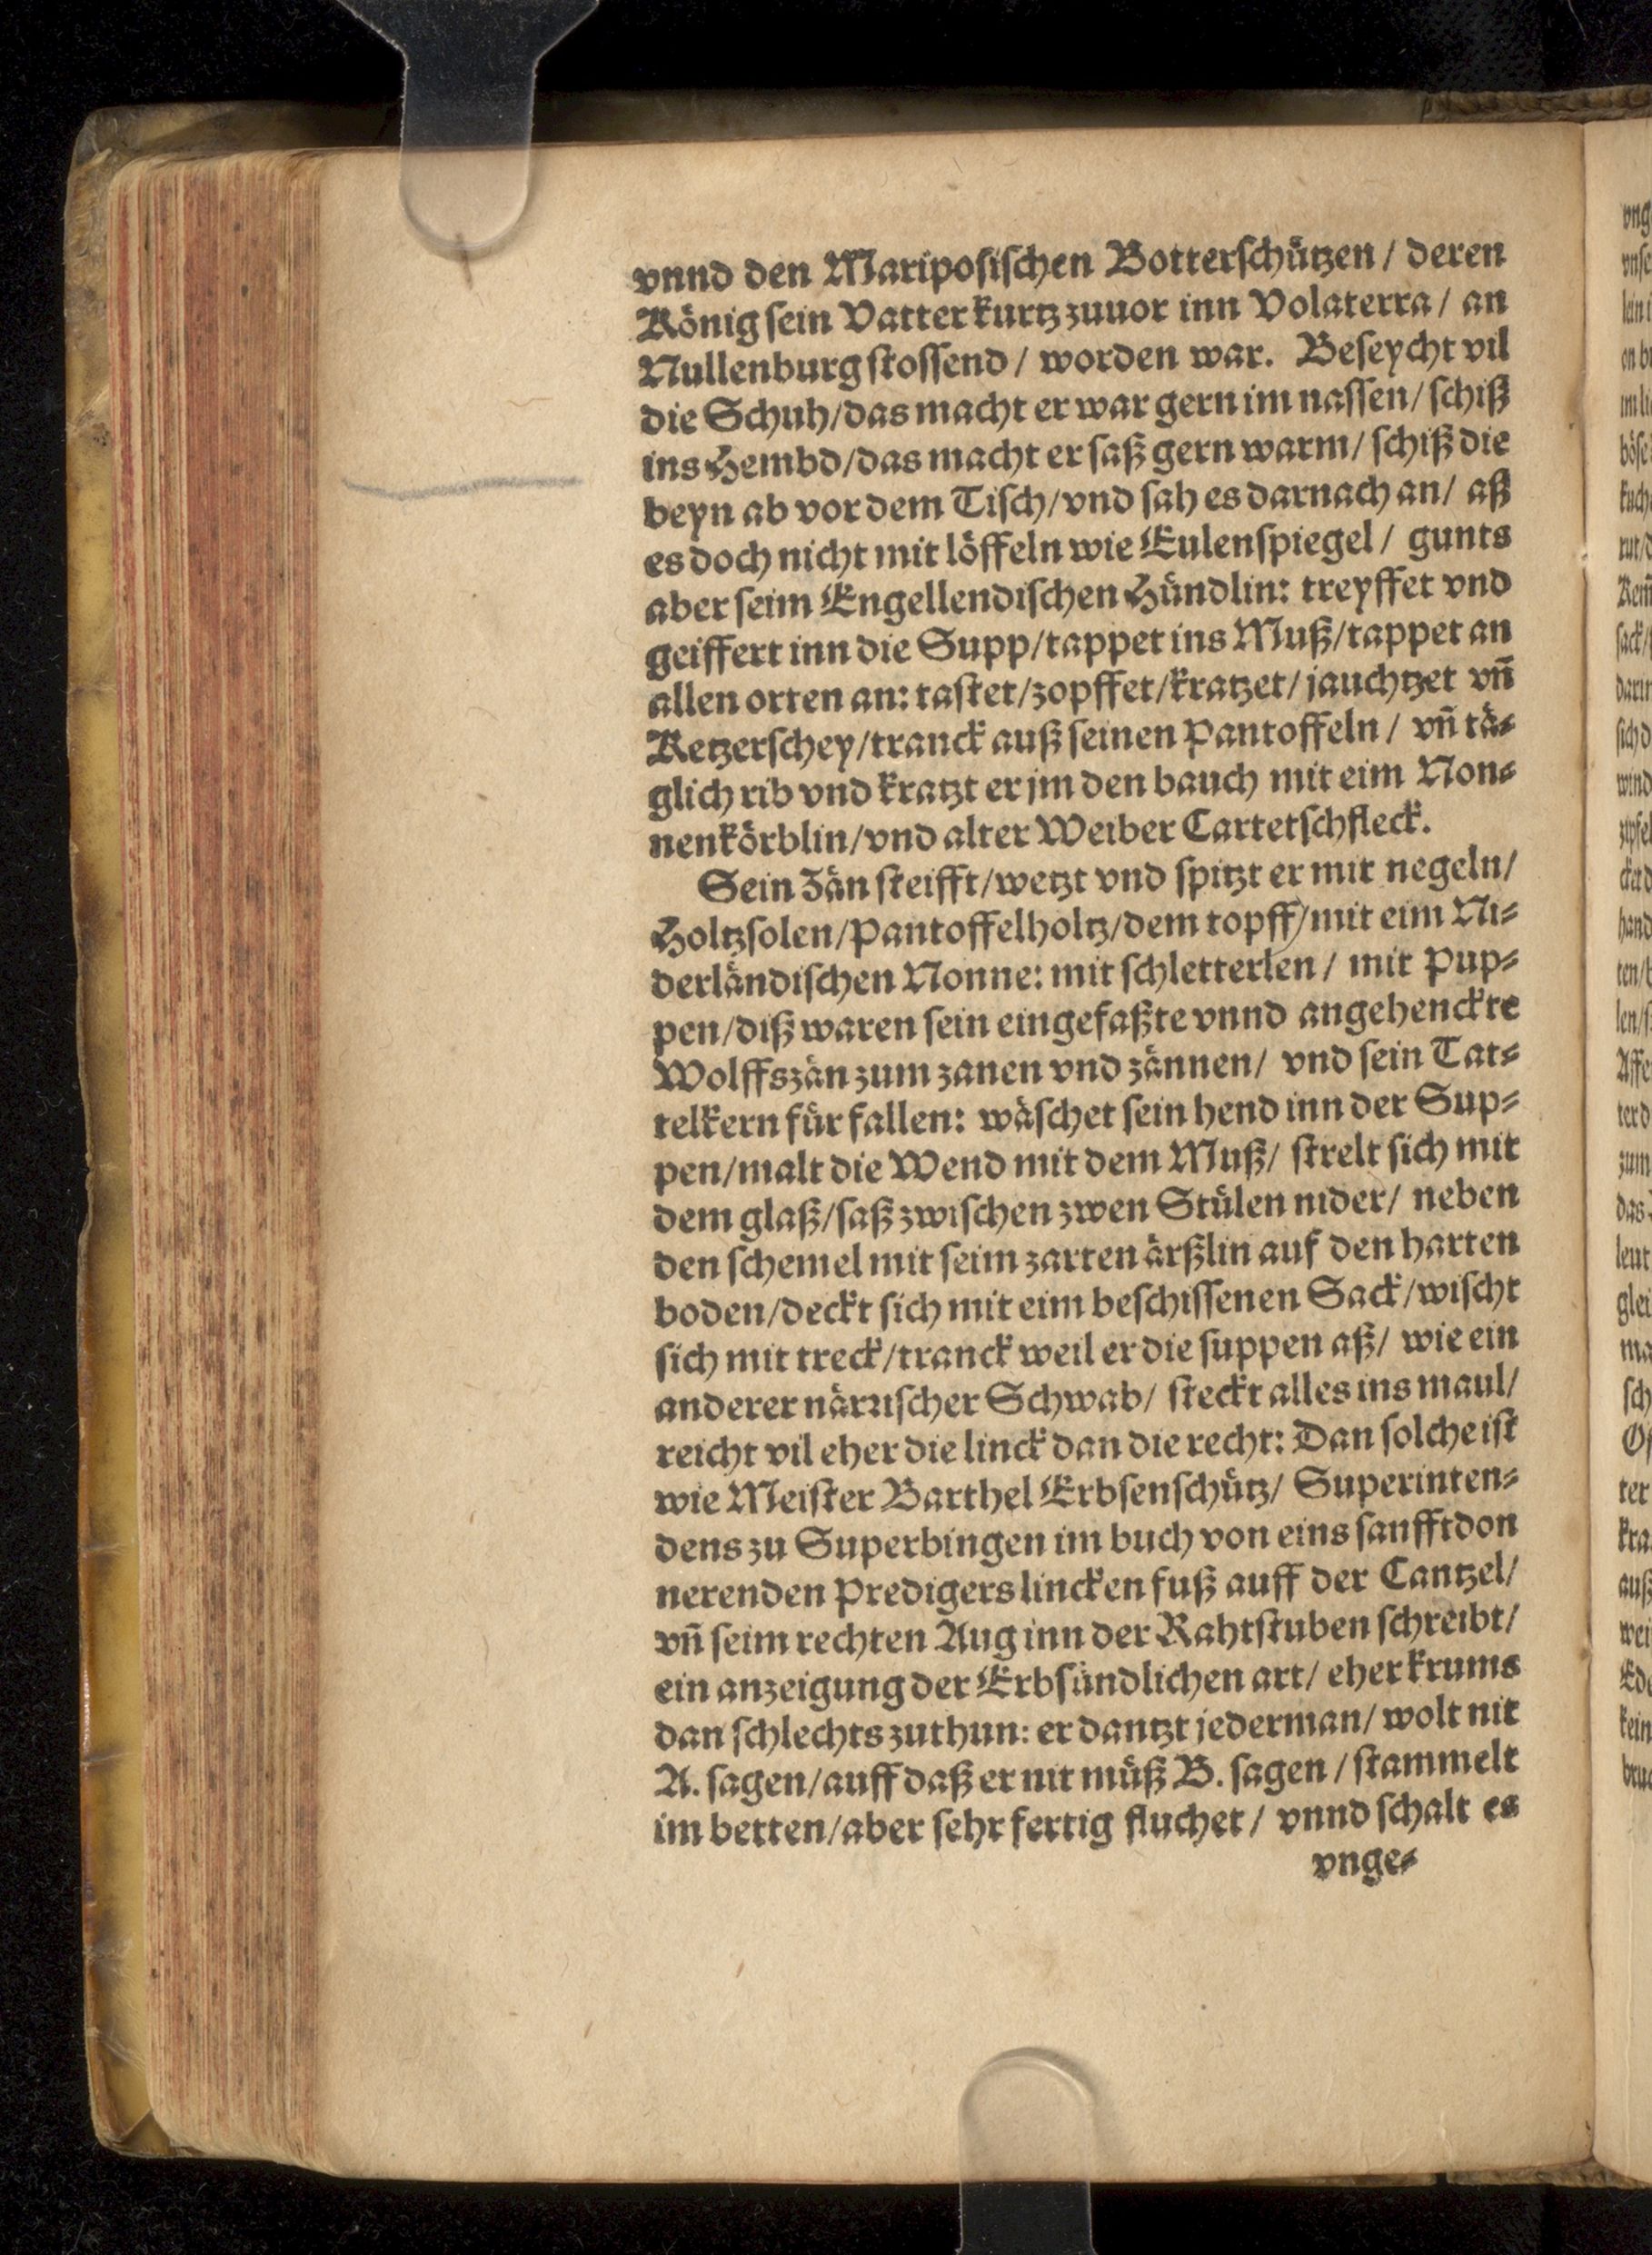 vnnd den Mariposischen Botterschützen / deren
König sein Vatter kurtz zuuor inn Volaterra / an
Nullenburg stossend / worden war. Beseycht vil
die Schuh/das macht er war gern im nassen/ schiß
ins Hembd/das macht er saß gern warm/ schiß die
beyn ab vor dem Tisch/vnd sah es darnach an/ aß
es doch nicht mit löffeln wie Eulenspiegel / gunts
aber seim Engellendischen Hündlin: treyffet vnd
geiffert inn die Supp/tappet ins Muß/tappet an
allen orten an: tastet/zopffet/kratzet/ jauchtzet vñ
Ketzerschey/tranck auß seinen Pantoffeln / vñ tä⸗
glich rib vnd kratzt er jm den bauch mit eim Non⸗
nenkörblin/vnd alter Weiber Cartetschfleck.
Sein Zän steifft/wetzt vnd spitzt er mit negeln/
Holtzsolen/Pantoffelholtz/dem topff/mit eim Ni⸗
derländischen Nonne: mit schletterlen / mit Pup⸗
pen/diß waren sein eingefaßte vnnd angehenckte
Wolffszän zum zanen vnd zännen/ vnd sein Tat⸗
telkern für fallen: wäschet sein hend inn der Sup⸗
pen/malt die Wend mit dem Muß/ strelt sich mit
dem glaß/saß zwischen zwen Stülen nider/ neben
den schemel mit seim zarten ärßlin auf den harten
boden/deckt sich mit eim beschissenen Sack/wischt
sich mit treck/tranck weil er die suppen aß/ wie ein
anderer närrischer Schwab/ steckt alles ins maul/
reicht vil eher die linck dan die recht: Dan solche ist
wie Meister Barthel Erbsenschütz/ Superinten⸗
dens zu Superbingen im buch von eins sanfftdon
nerenden Predigers lincken fuß auff der Cantzel/
vñ seim rechten Aug inn der Rahtstuben schreibt/
ein anzeigung der Erbsündlichen art/ eher krums
dan schlechts zuthun: er dantzt jederman/ wolt nit
A. sagen/auff daß er nit müß B. sagen / stammelt
im betten/aber sehr fertig fluchet / vnnd schalt es
vnge⸗